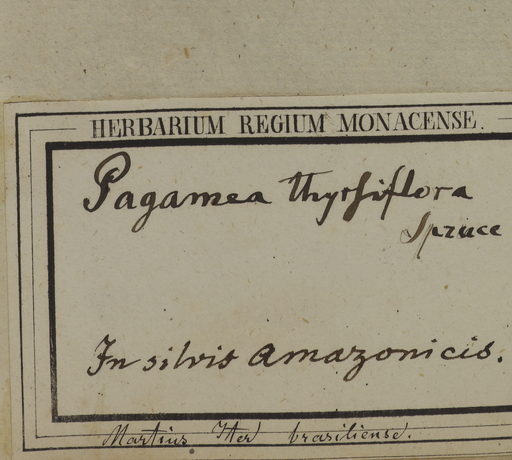 HERBARIUM REGIUM MONACENSE.
Pagamea thyrsiflora
Spruce
In silvis amazonicis.
Martius Iter brasiliense.